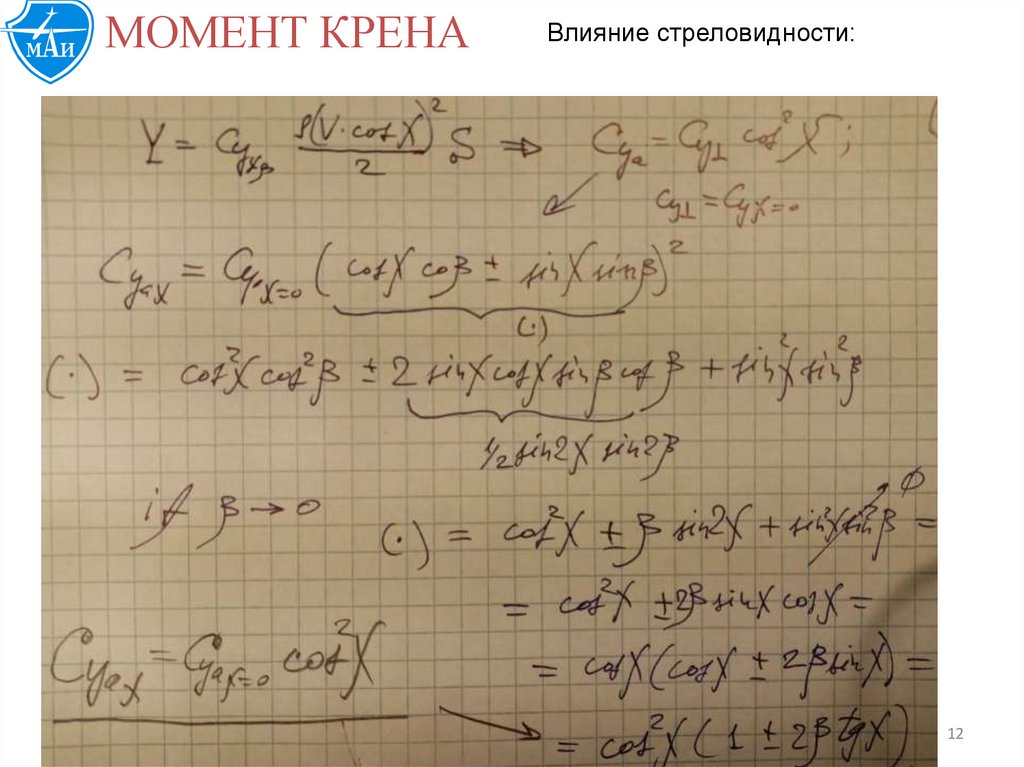 МАИ
МОМЕНТ КРЕНА
Влияние стреловидности:
Y = Cyχβ ρ(V·cosχ)²/2 S ⇒ Cya = Cy⊥ cos²χ;
Cy⊥ = Cyχ=0
Cyaχ = Cyχ=0 (cosχ cosβ ± sinχ sinβ)²
(·)
(·) = cos²χ cos²β ± 2 sinχ cosχ sinβ cosβ + sin²χ sin²β
1/2 sin2χ sin2β
if β → 0
(·) = cos²χ ± β sin2χ + sin²χ sin²β =
0
= cos²χ ± 2β sinχ cosχ =
Cyaχ = Cyaχ=0 cos²χ
= cosχ (cosχ ± 2β sinχ) =
= cos²χ (1 ± 2β tgχ)
12